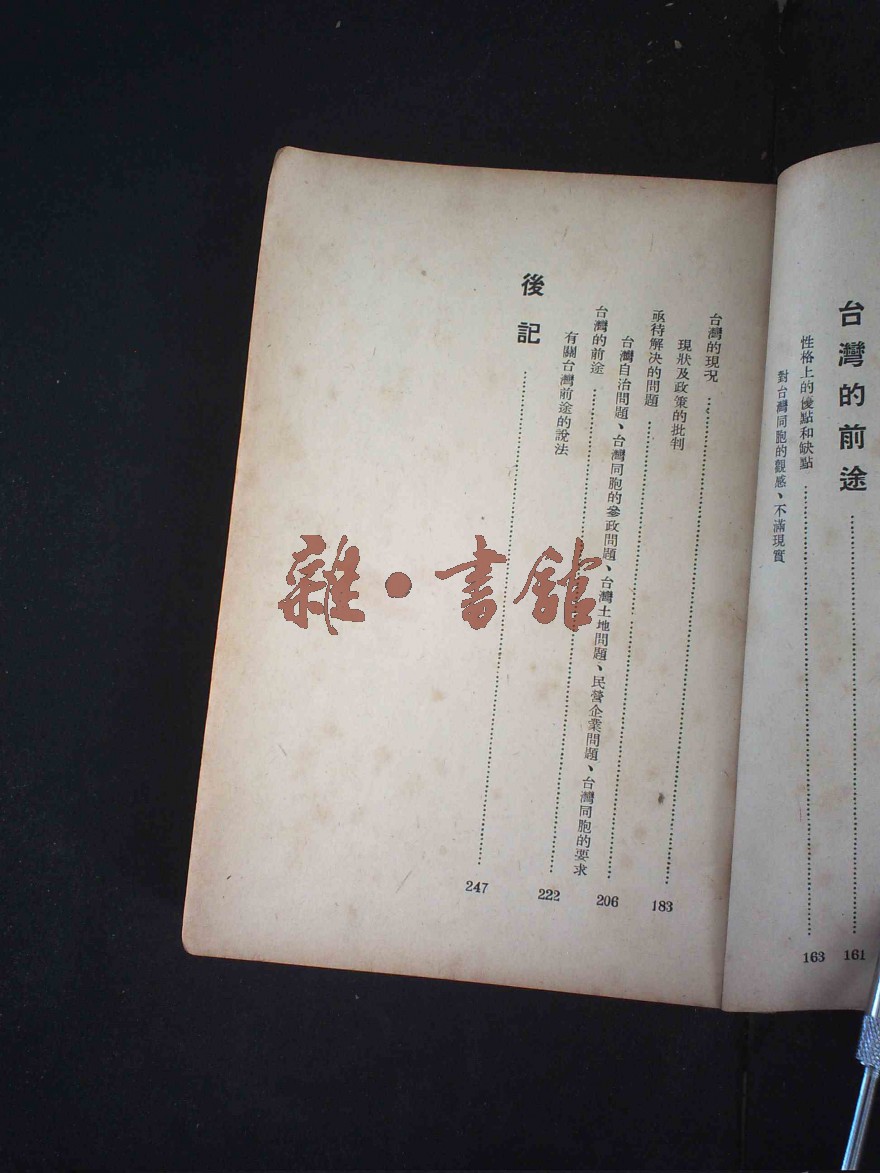 台灣的前途 161
性格上的優點和缺點 163
對台灣同胞的觀感、不滿現實
台灣的現況 183
現狀及政策的批判
亟待解決的問題 206
台灣自治問題、台灣同胞的參政問題、台灣土地問題、民營企業問題、台灣同胞的要求
台灣的前途 222
有關台灣前途的說法
後記 247
雜·書館